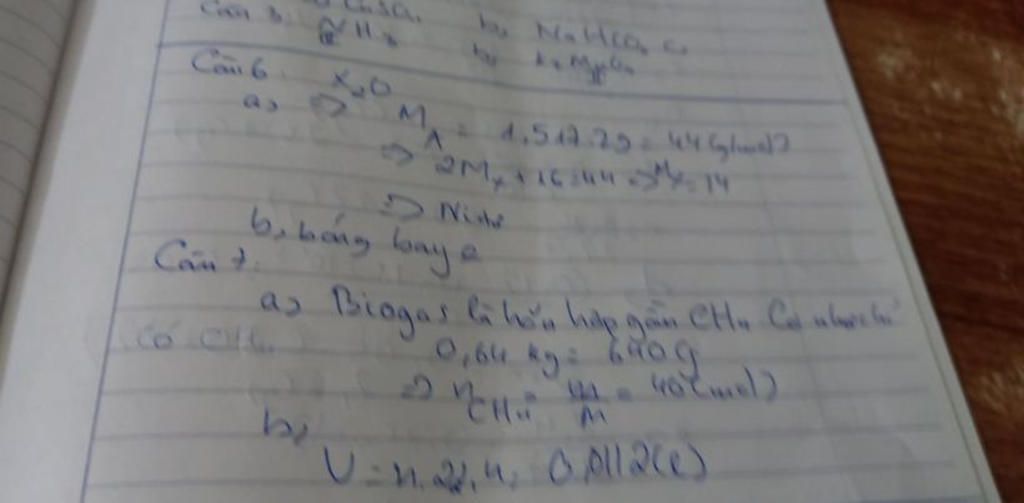 Câu 3. NH₃
Câu 6. X₂O
a, ⇒ M_A = 1,517.29 = 44 (g/mol)
⇒ 2Mₓ + 16 = 44 ⇒ Mₓ = 14
⇒ Nitơ
b, bóng bay
Câu 7.
a, Biogas là hỗn hợp gần CH₄
có CH₄ 0,64 kg = 640g
⇒ n CH₄ = m/M = 40 (mol)
b,
V = n.22,4 = 0,0112 (l)